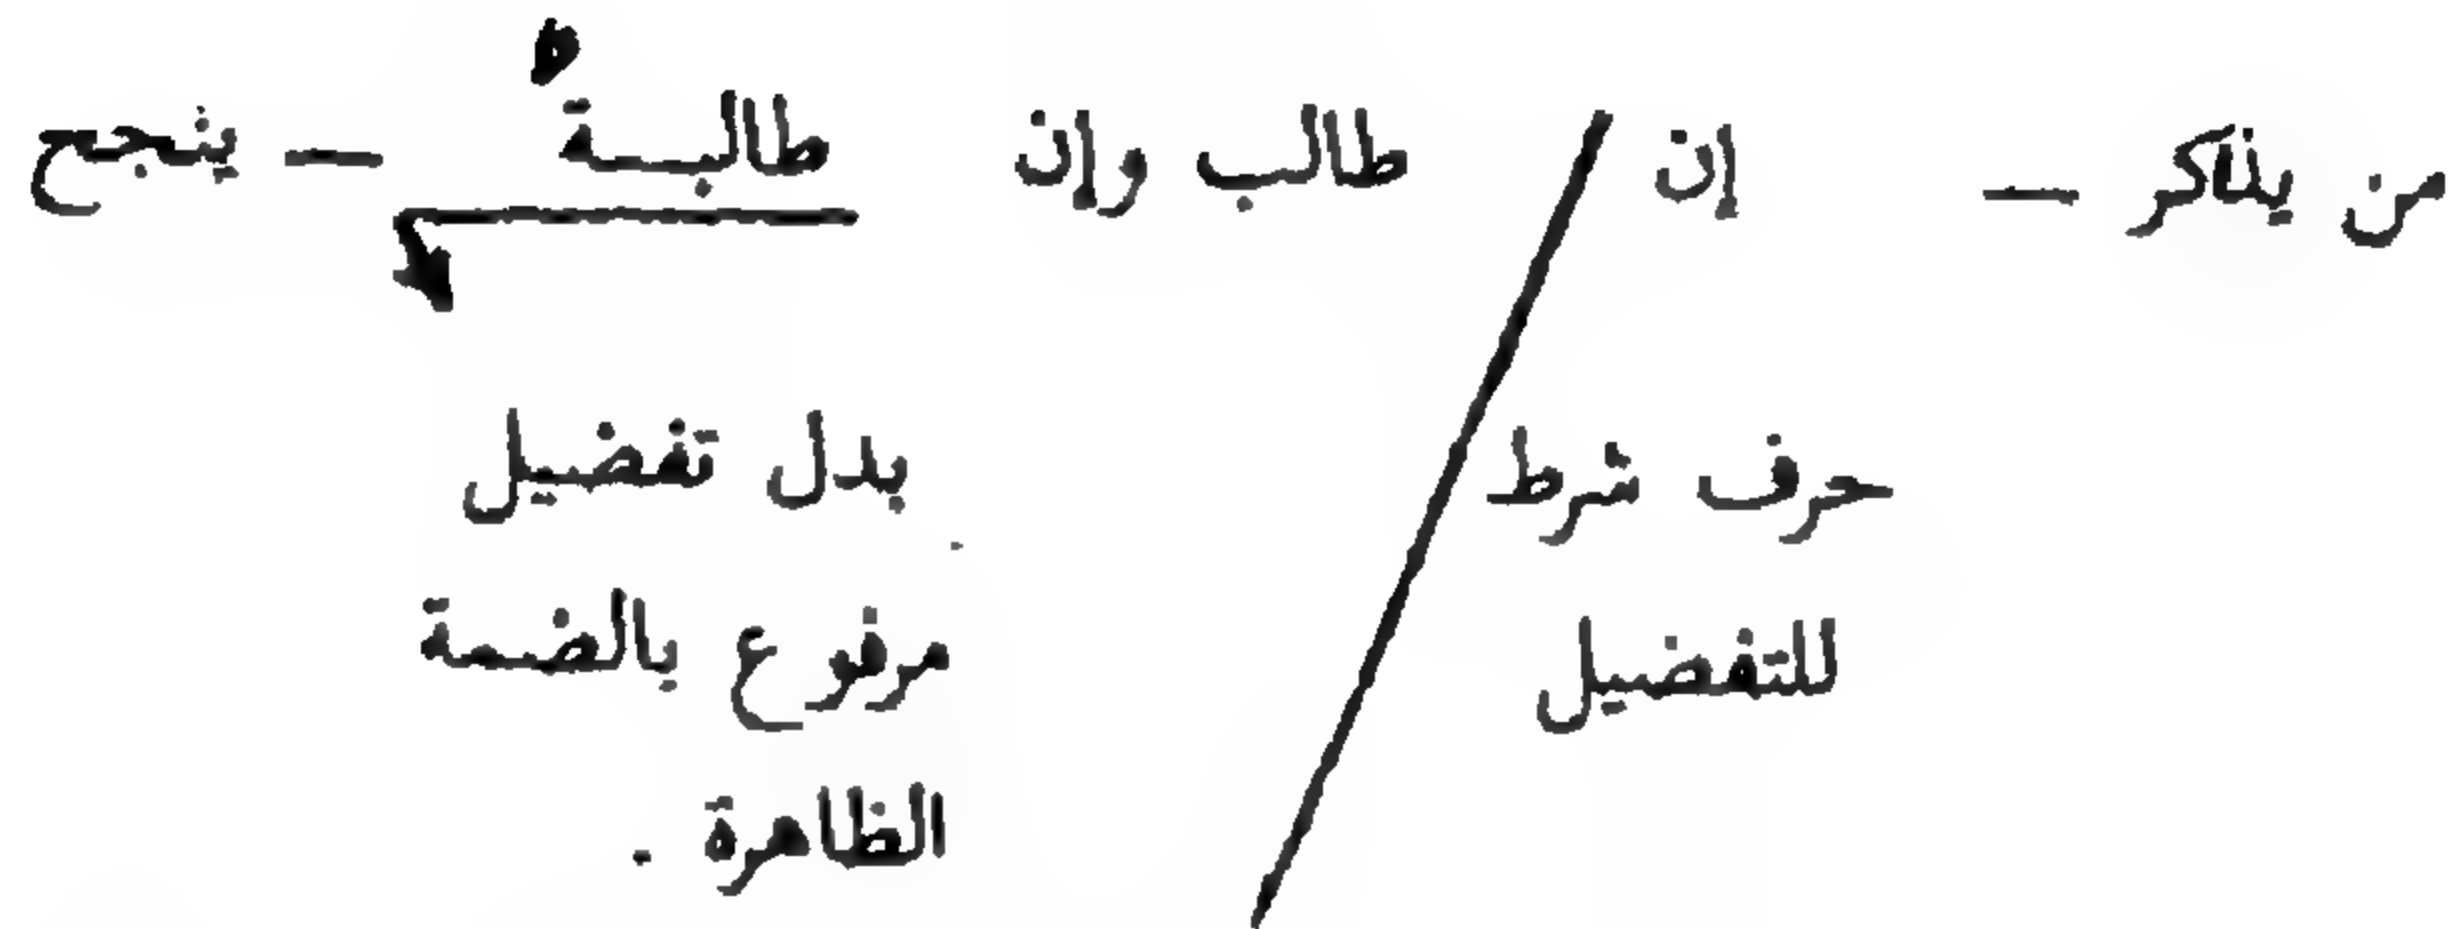 من يذاكر – إن / طالب وإن طالبةٌ – ينجح
حرف شرط
للتفضيل
بدل تفضيل
مرفوع بالضمة
الظاهرة .